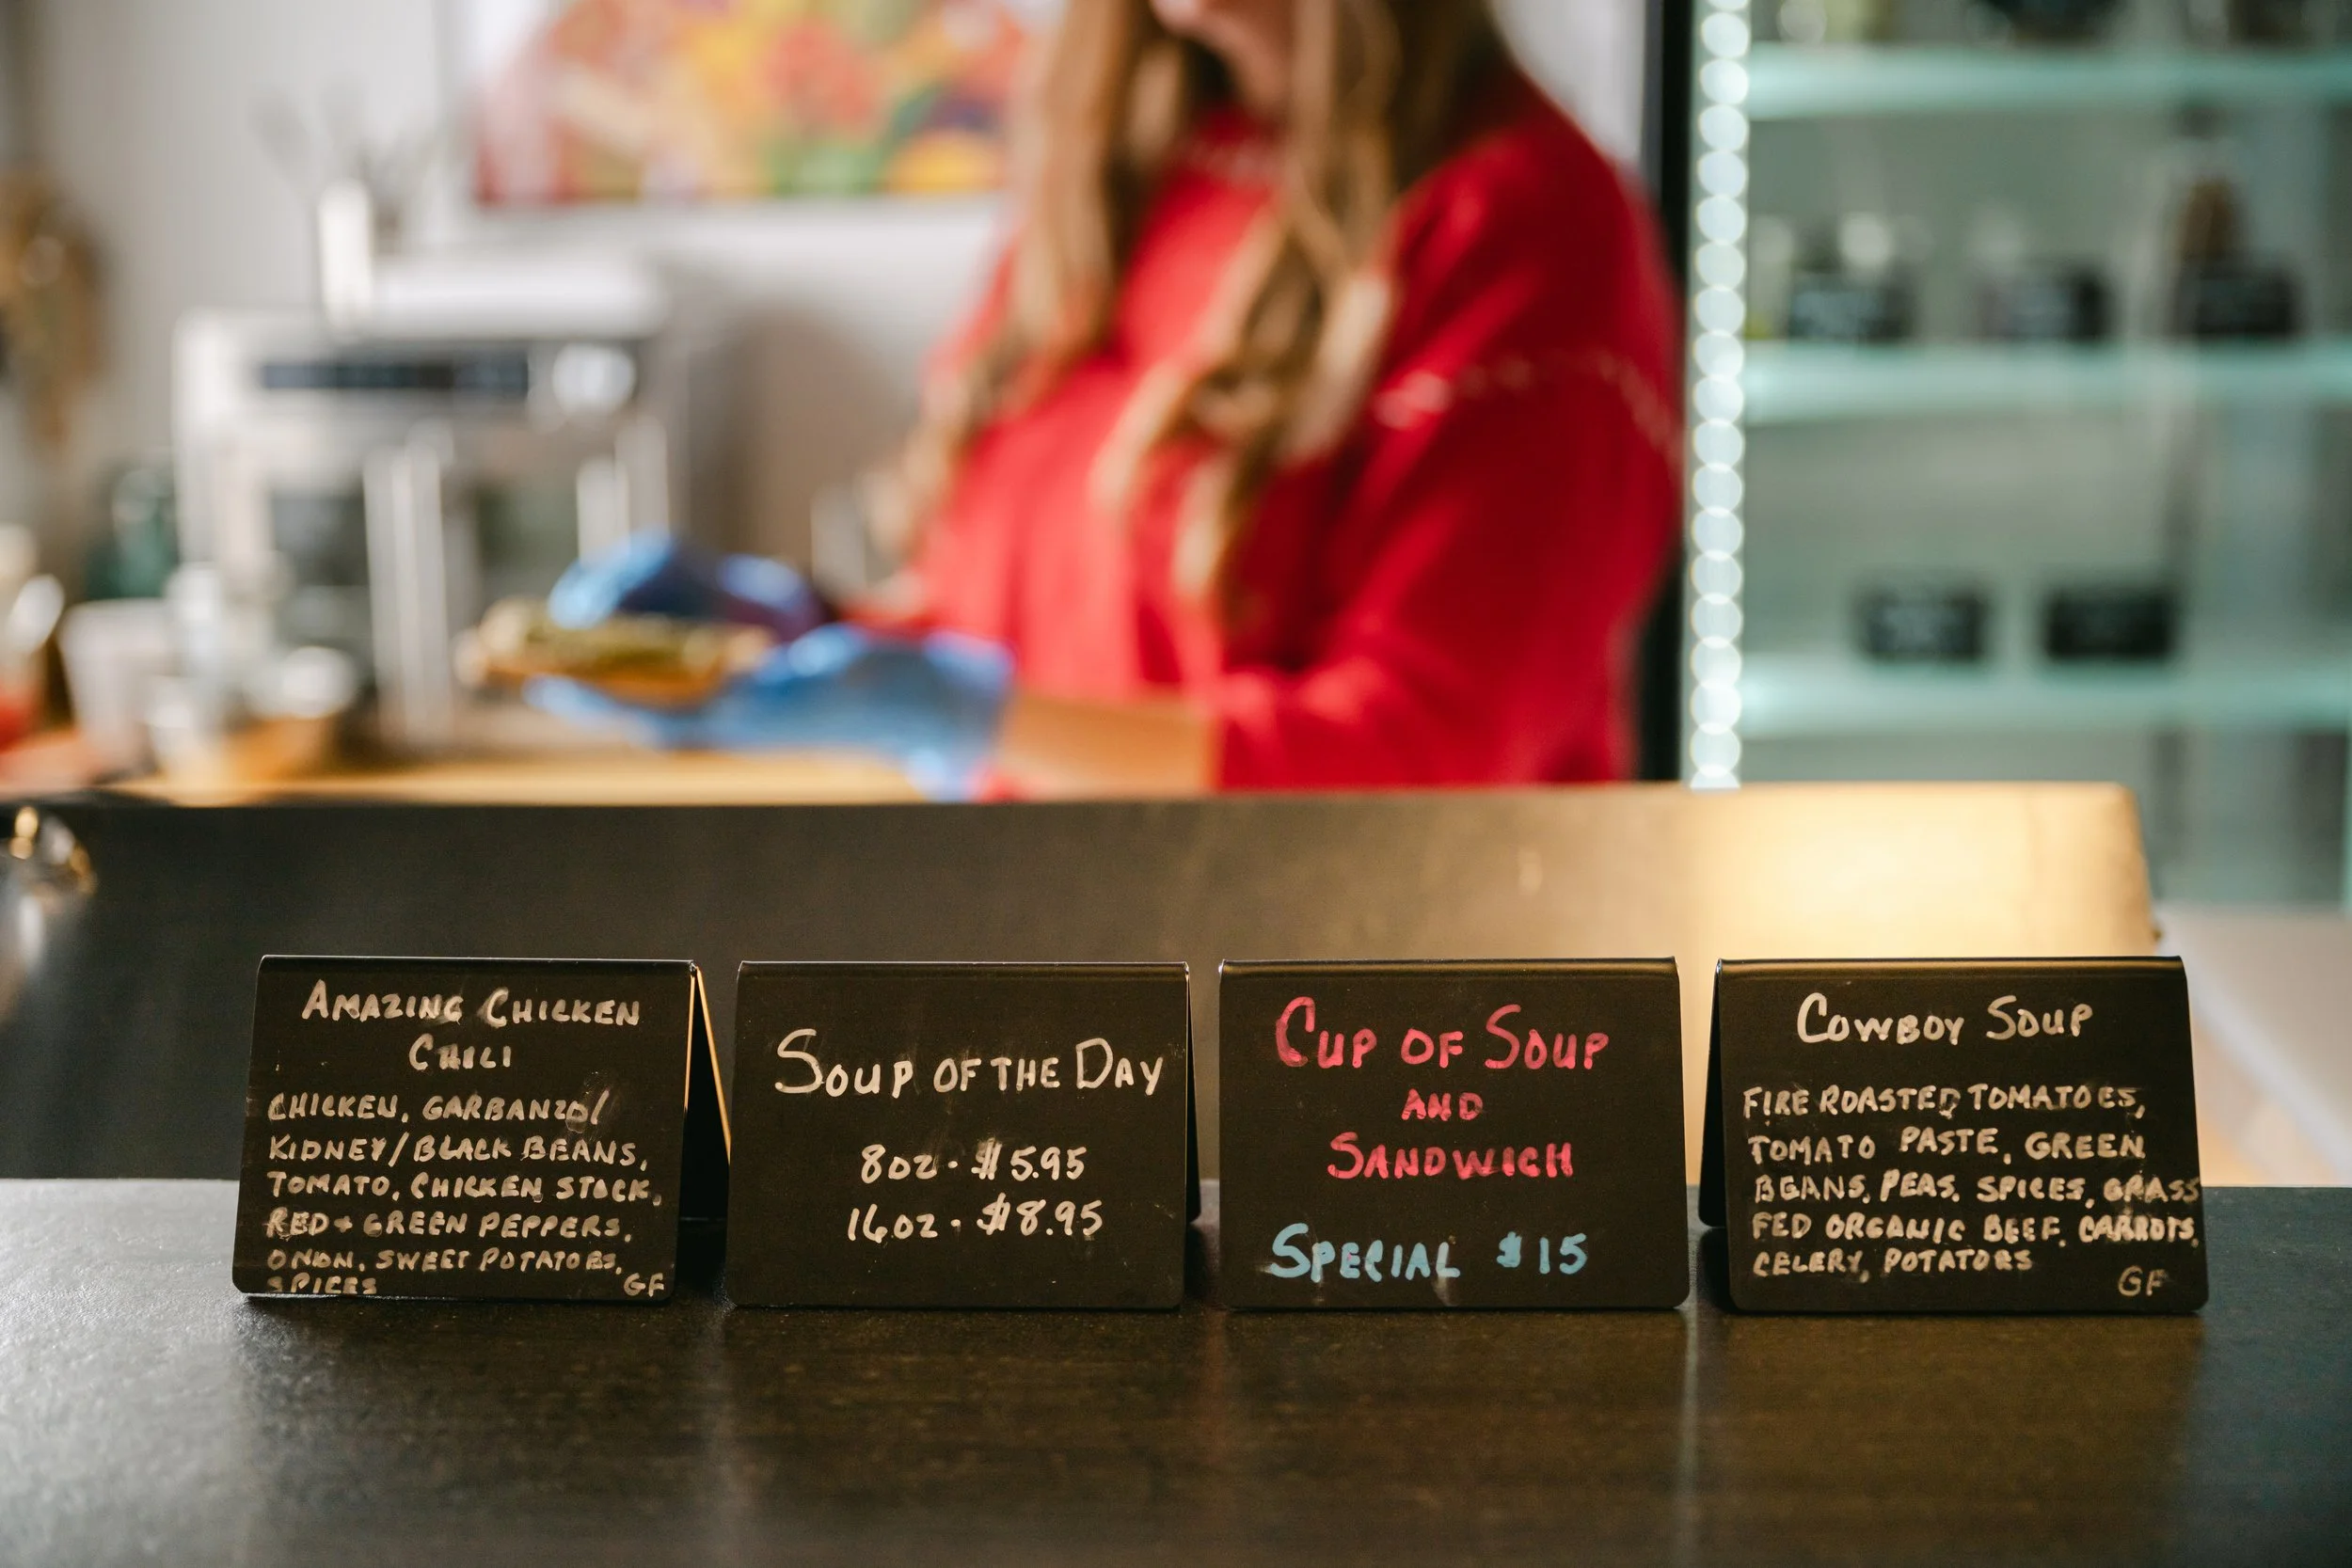 AMAZING CHICKEN
CHILI
CHICKEN, GARBANZO/
KIDNEY/BLACK BEANS,
TOMATO, CHICKEN STOCK,
RED + GREEN PEPPERS,
ONION, SWEET POTATOES,
SPICES GF
SOUP OF THE DAY
8oz - $5.95
16oz - $8.95
CUP OF SOUP
AND
SANDWICH
SPECIAL $15
COWBOY SOUP
FIRE ROASTED TOMATOES,
TOMATO PASTE, GREEN
BEANS, PEAS, SPICES, GRASS
FED ORGANIC BEEF, CARROTS,
CELERY, POTATOES
GF